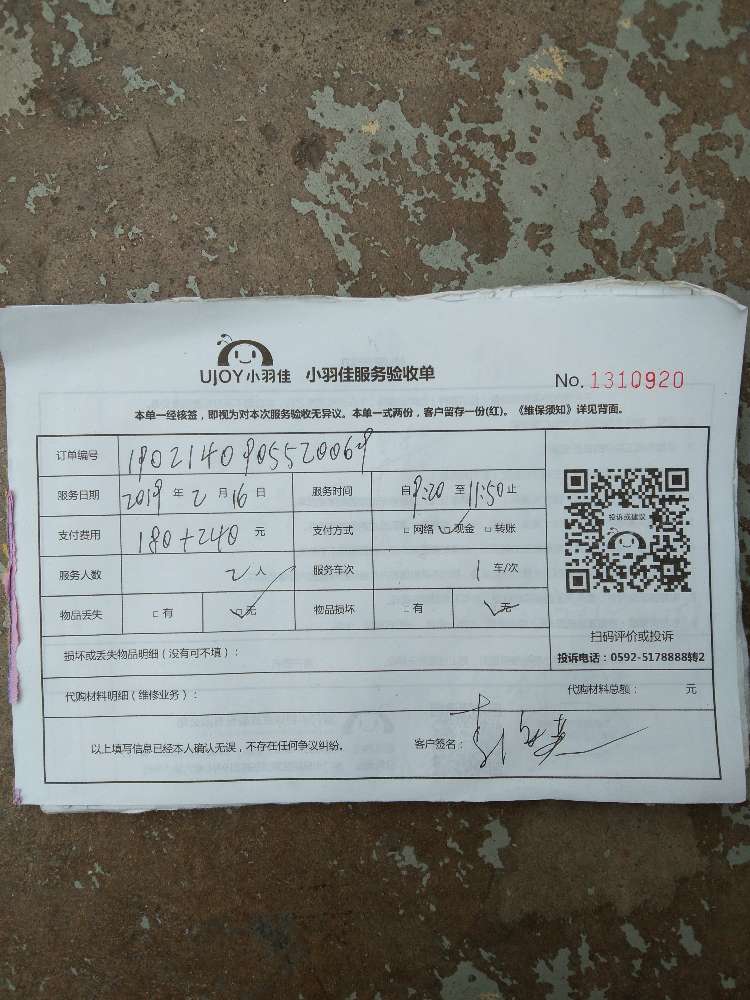 UJOY小羽佳 小羽佳服务验收单 No. 1310920
本单一经核签，即视为对本次服务验收无异议。本单一式两份，客户留存一份(红)。《维保须知》详见背面。
订单编号 1902140905520069
服务日期 2019 年 2 月 16 日 服务时间 自 9:20 至 11:50 止
支付费用 180+240 元 支付方式 □网络 ☑现金 □转账
服务人数 2 人 服务车次 1 车/次
物品丢失 □有 ☑无 物品损坏 □有 ☑无
投诉或建议
扫码评价或投诉
投诉电话：0592-5178888转2
损坏或丢失物品明细（没有可不填）：
代购材料明细（维修业务）： 代购材料总额： 元
以上填写信息已经本人确认无误，不存在任何争议纠纷。 客户签名：